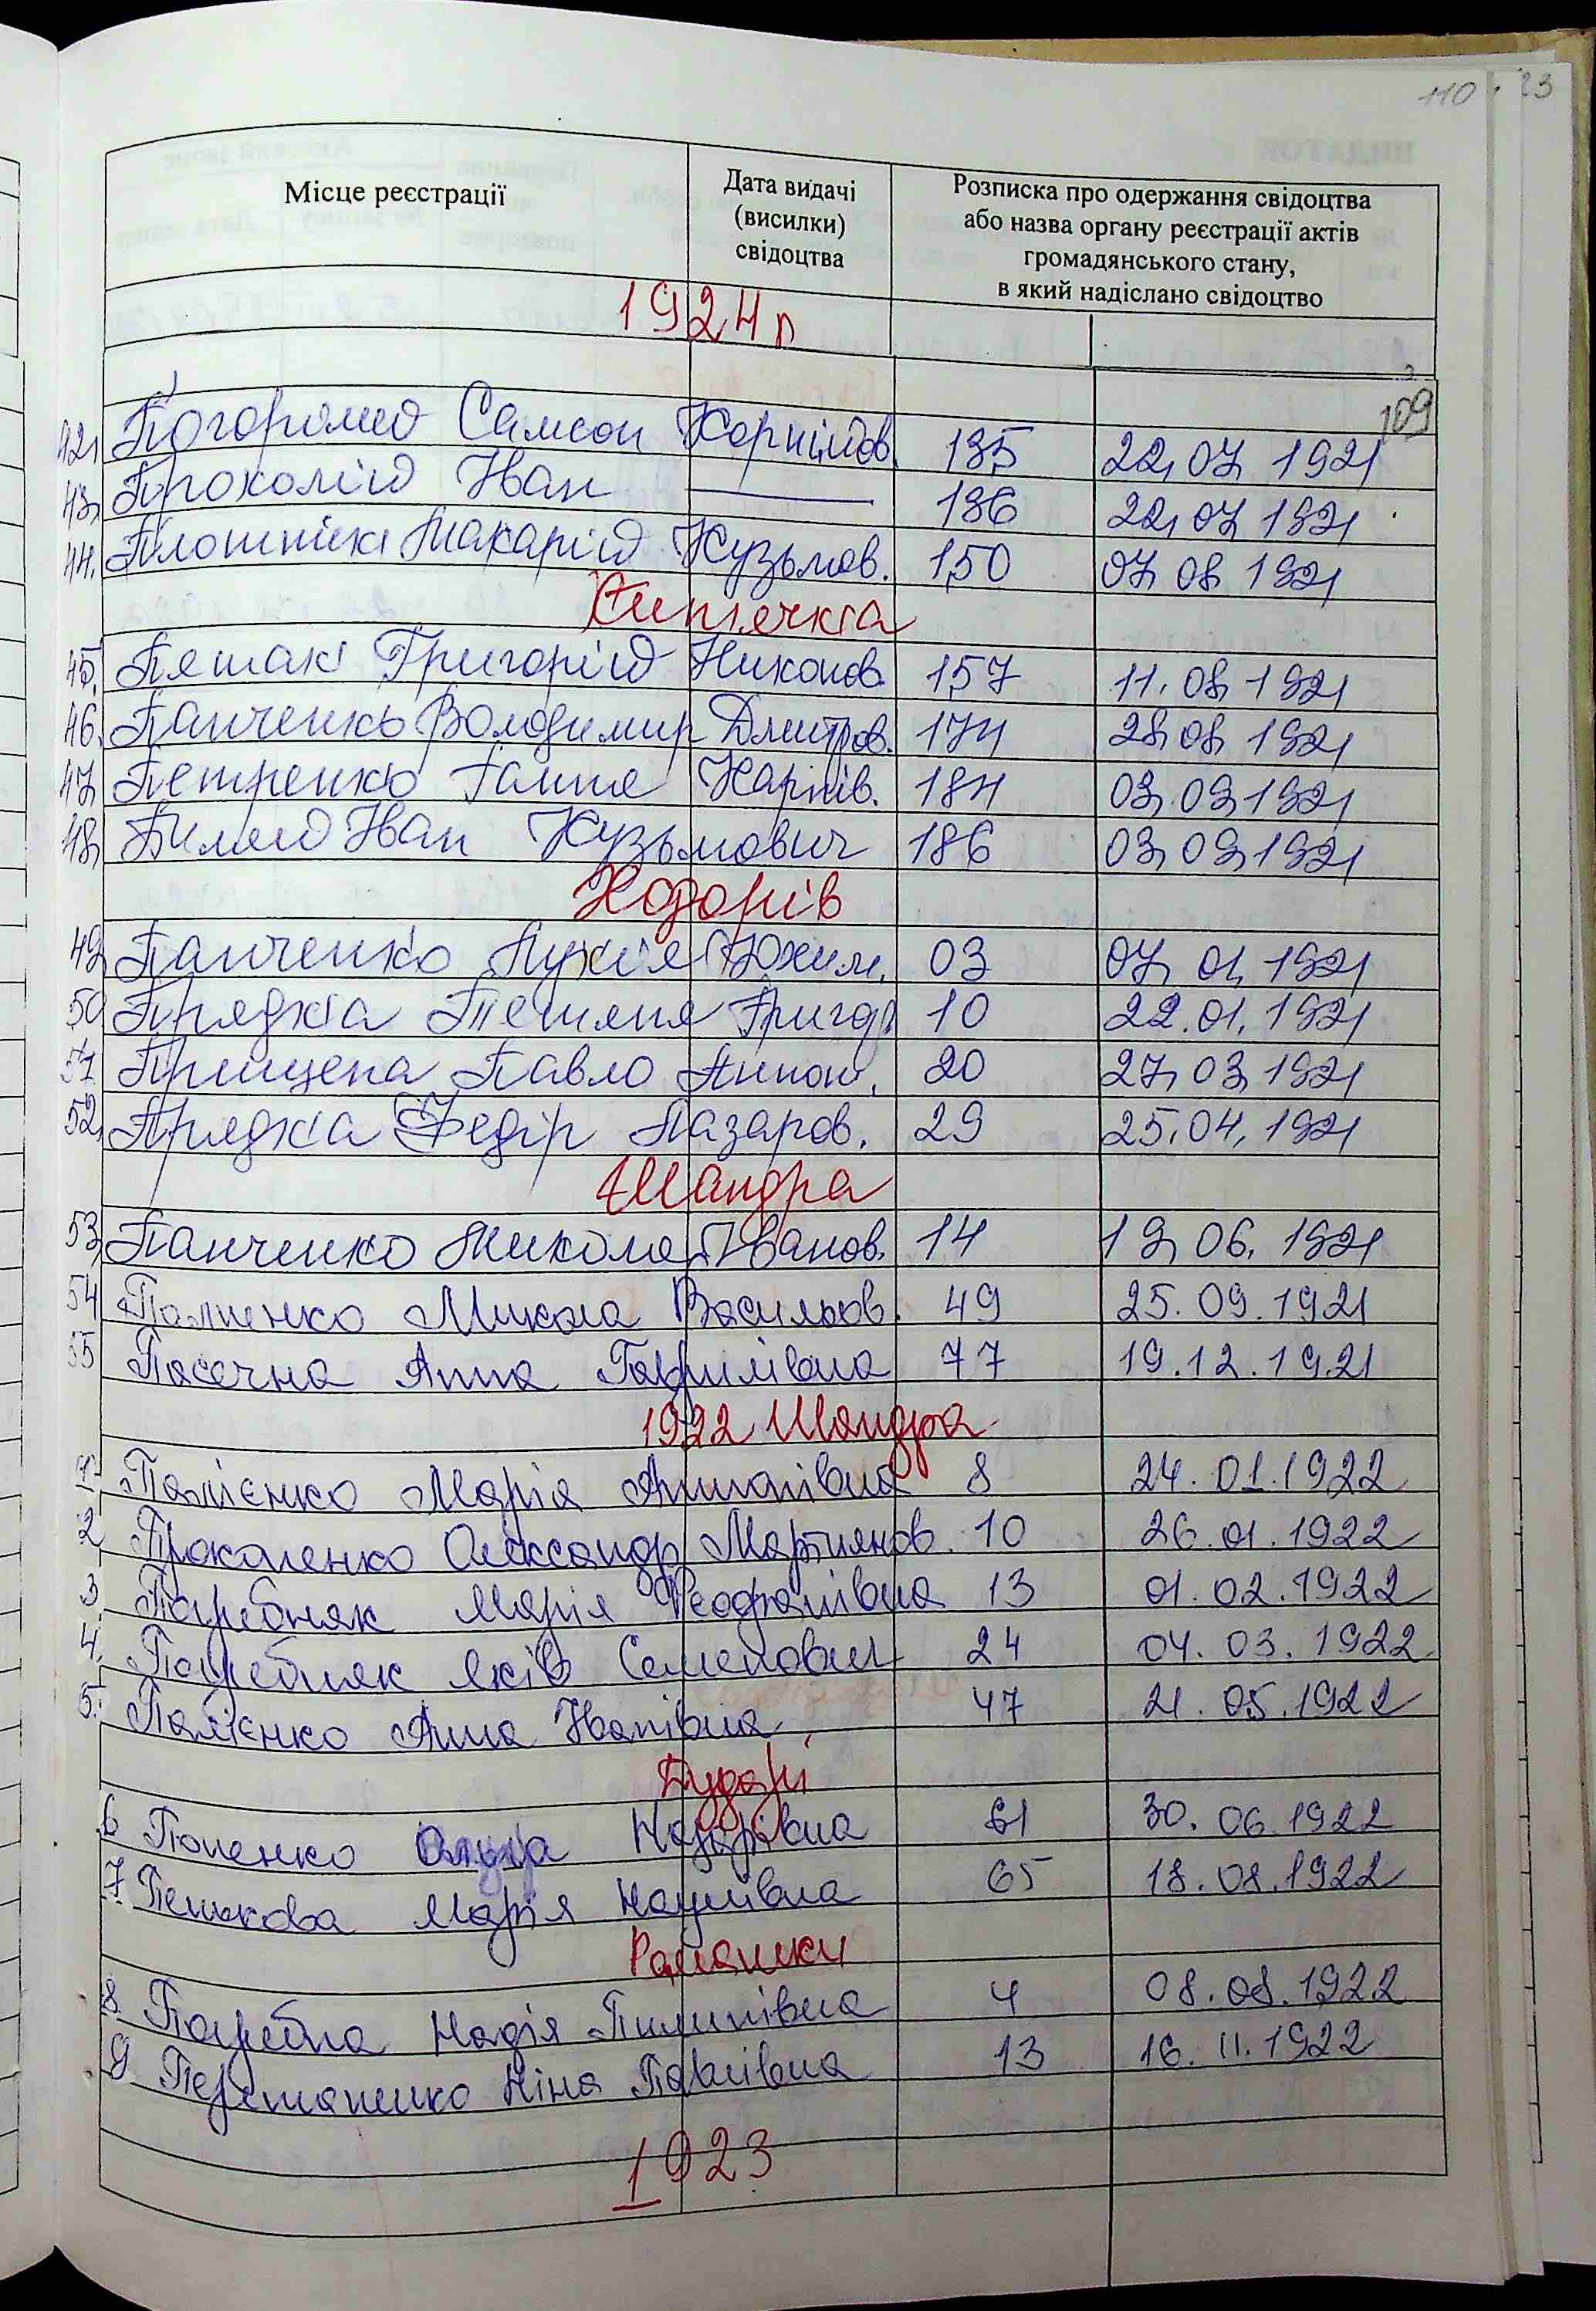 110
23
Місце реєстрації
Дата видачі
(висилки)
свідоцтва
Розписка про одержання свідоцтва
або назва органу реєстрації актів
громадянського стану,
в який надіслано свідоцтво
1924 р
109
42. Погорілий Самсон Корнійов. 135 22.07 1921
43. Прокопій Іван — 136 22.07 1921
44. Плотнік Макарій Кузьмов. 150 07 08 1921
45. Пятак Григорій Никонов. 157 11.08 1921
46. Панченко Володимир Дмитров. 174 28.08 1921
47. Петренко Ганна Карпів. 184 03.09 1921
48. Білий Іван Кузьмович 186 03.09.1921
Ходорів
49 Панченко Лукія Юхим. 03 07 01. 1921
50 Прядка Тетяна Григор 10 22.01. 1921
51. Прищепа Павло Антон. 20 27.03 1921
52. Прядка Федір Лазаров. 29 25.04. 1921
Шандра
53. Панченко Микола Іванов. 14 19.06. 1921
54 Палієнко Микола Васильов. 49 25.09.1921
55 Пасечна Анна Гаврилівна 77 19.12.1921
1922 Шандра
1. Палієнко Марія Антонівна 8 24.01.1922
2 Прокопенко Олександр Мартинов. 10 26.01.1922
3 Погребняк Марія Феофанівна 13 01.02.1922
4. Погребняк Яків Семенович 24 04.03.1922
5. Палієнко Анна Іванівна 47 21.05.1922
Дударі
6 Попенко Ольга Назарівна 61 30.06.1922
7. Пенькова Марія Наумівна 65 18.08.1922
Романки
8. Погребна Надія Пилипівна 4 08.08.1922
9 Перепаненко Ніна Павлівна 13 16.11.1922
1923